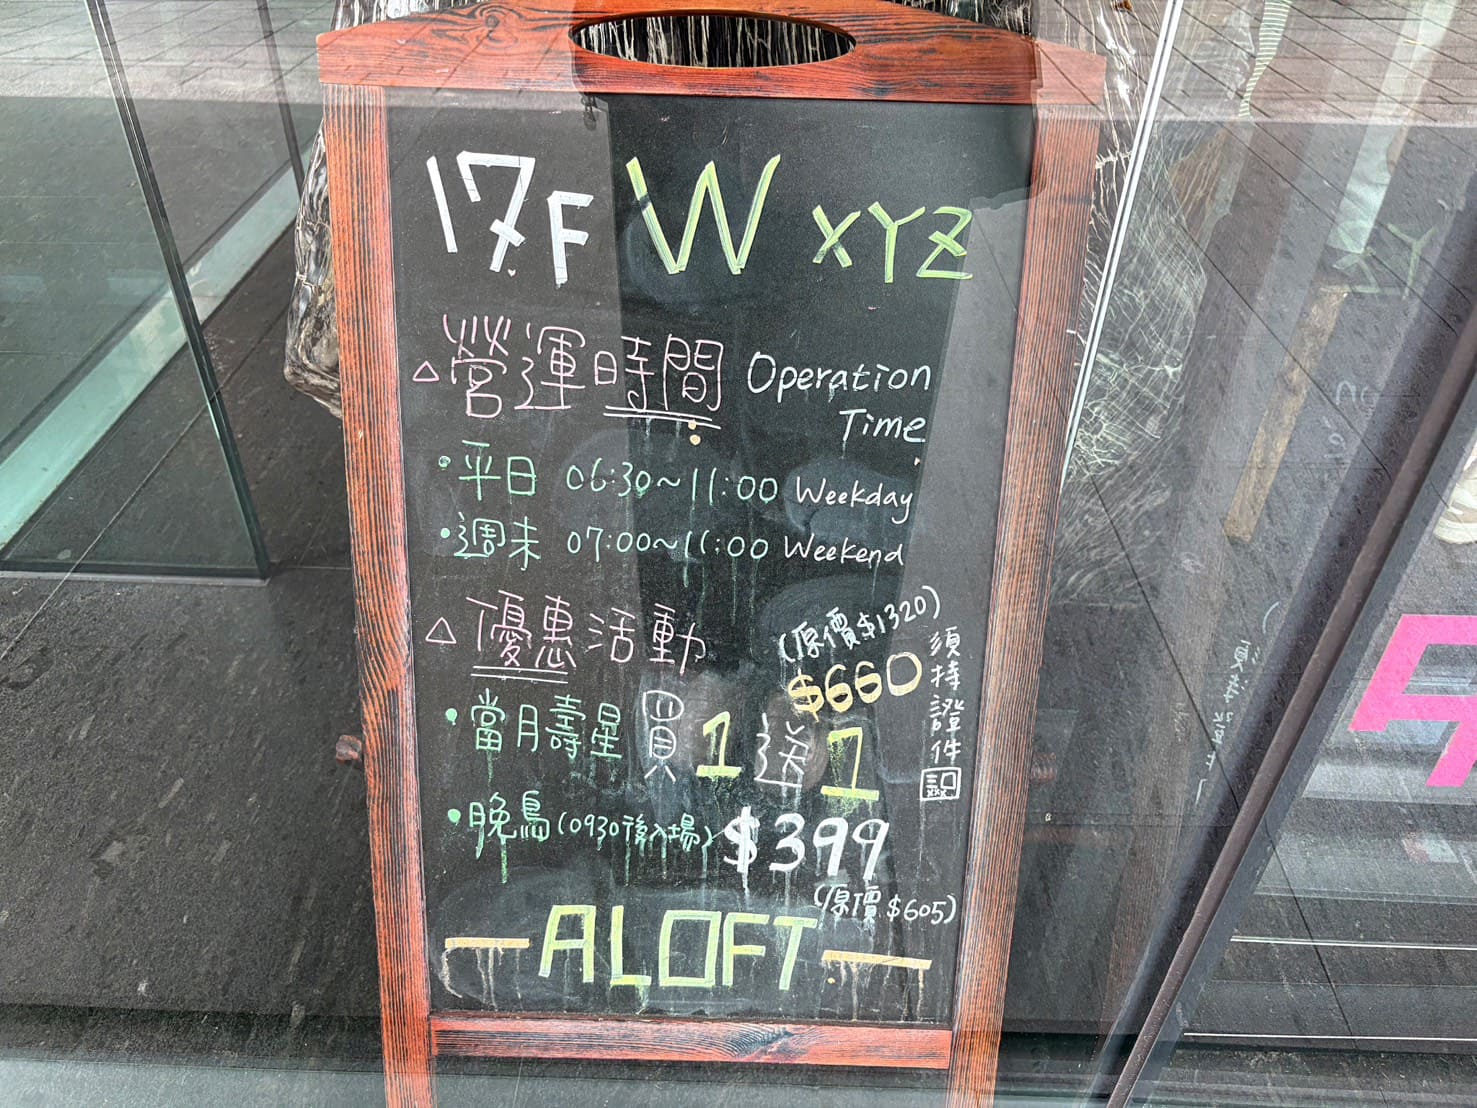 17F WXYZ
△營運時間 Operation
Time
•平日 06:30~11:00 Weekday
•週末 07:00~11:00 Weekend
△優惠活動
(原價$1320)
$660
須持證件
•當月壽星 買1送1
•晚鳥(0930後入場) $399
(原價$605)
—ALOFT—